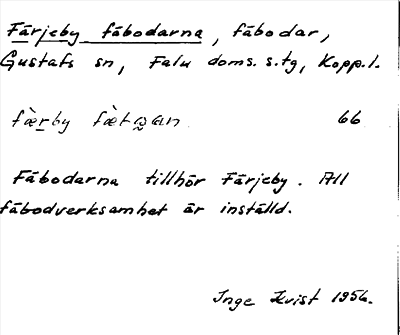 Färjeby fäbodarna, fäbodar,
Gustafs sn, Falu doms. s. tg, Kopp. l.
66
Fäbodarna tillhör Färjeby. All
fäbodverksamhet är inställd.
Inge Kvist 1956.